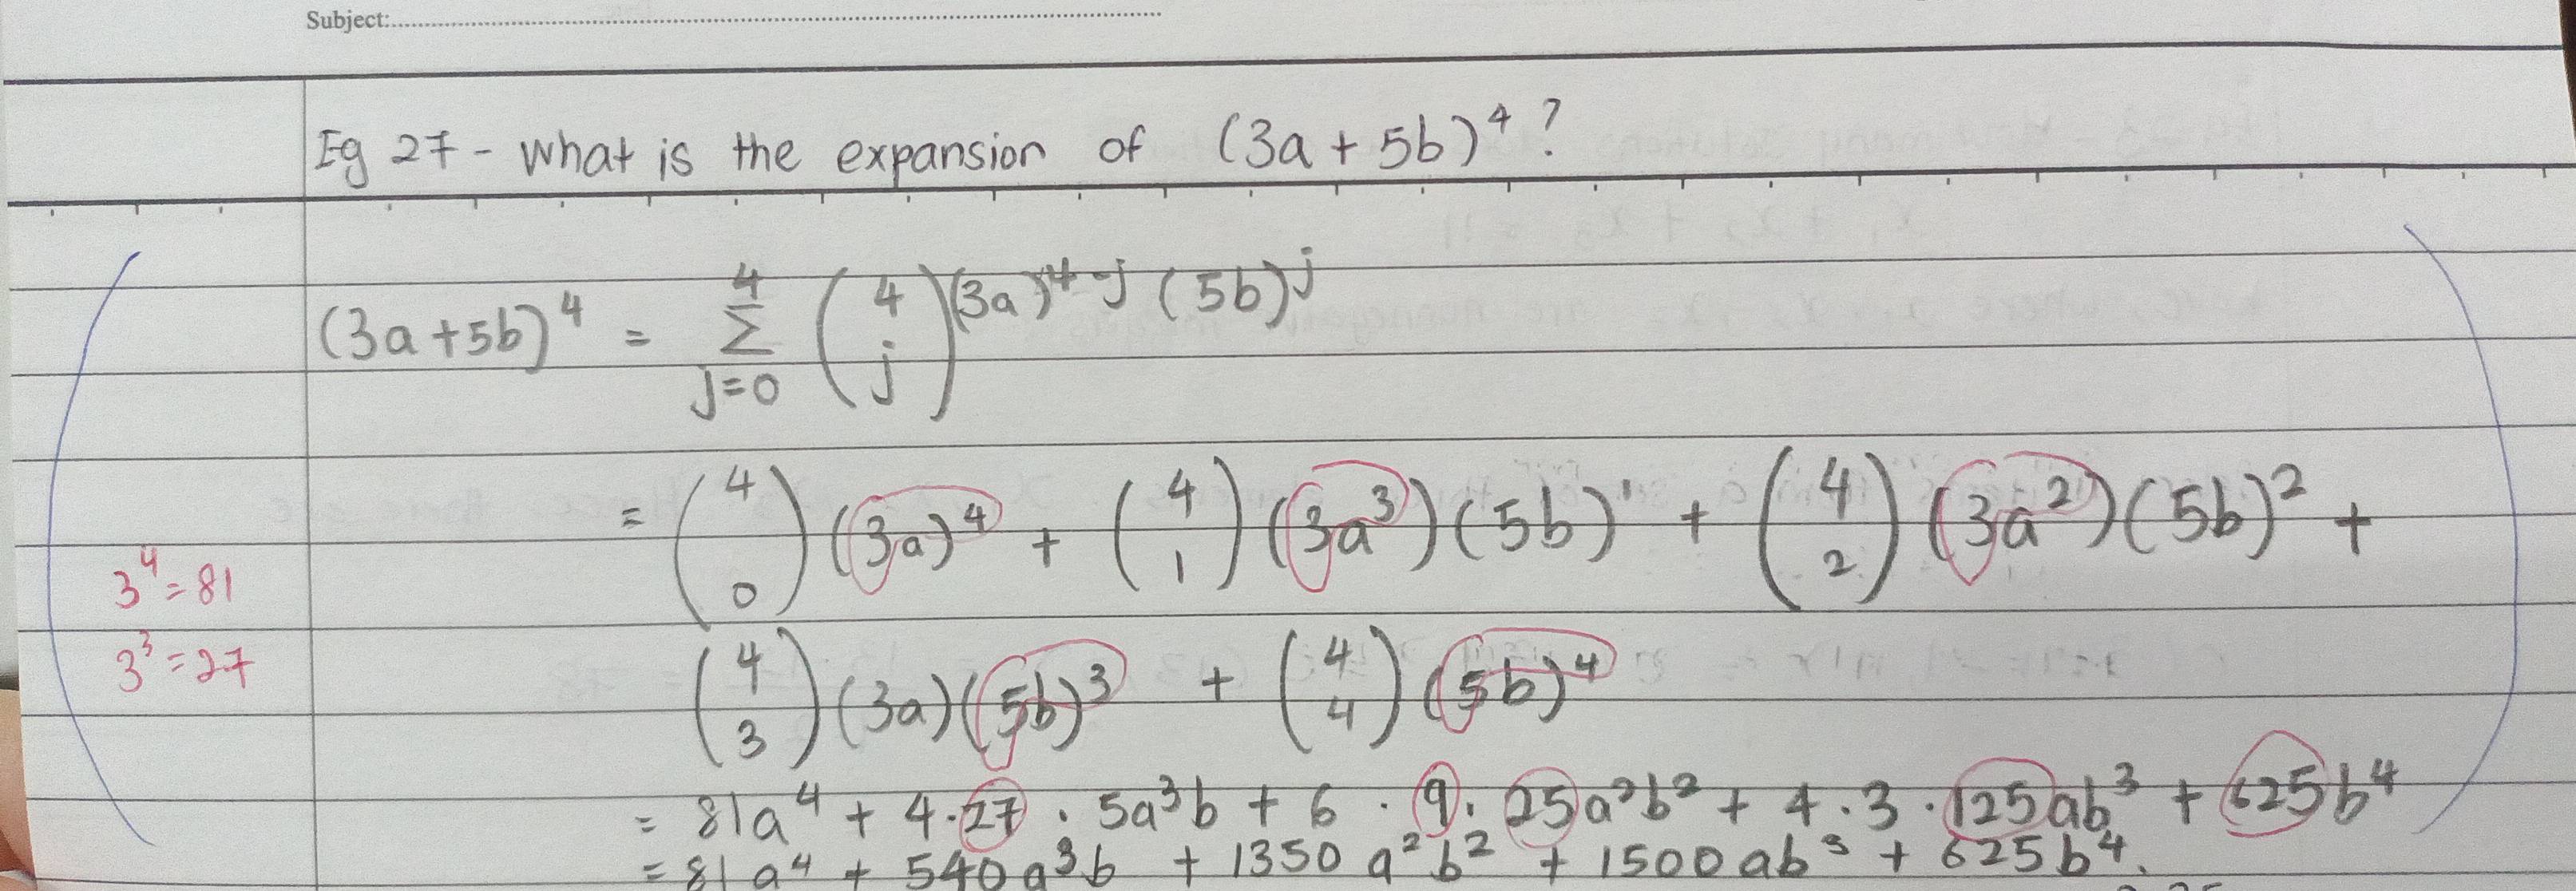 Subject:
Eg 27 - what is the expansion of (3a + 5b)⁴ ?
(3a+5b)⁴ = Σ_{j=0}^{4} (4 j) (3a)⁴⁻ʲ (5b)ʲ
= (4 0) (3a)⁴ + (4 1) (3a³)(5b)¹ + (4 2) (3a²)(5b)² +
3⁴ = 81
3³ = 27
(4 3) (3a)(5b)³ + (4 4) (5b)⁴
= 81a⁴ + 4·27 · 5a³b + 6 · 9 · 25a²b² + 4·3·125ab³ + 625b⁴
= 81a⁴ + 540a³b + 1350 a²b² + 1500ab³ + 625b⁴.